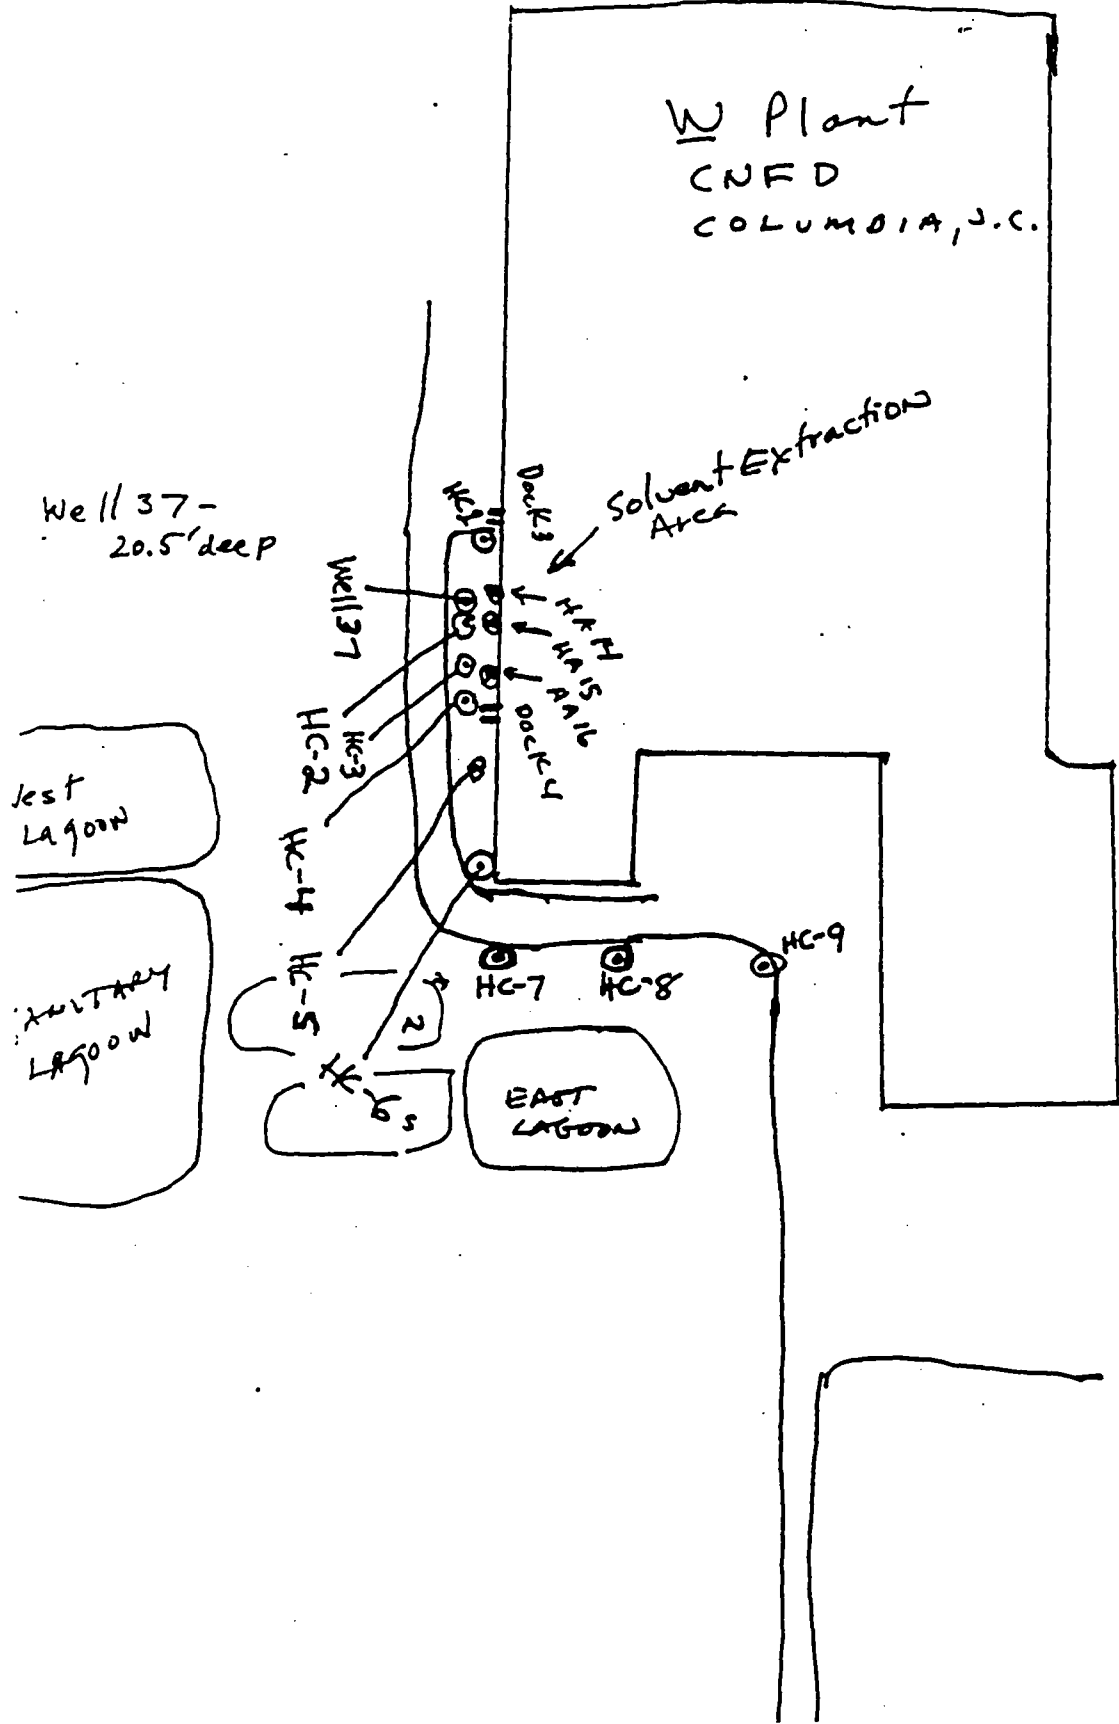 W Plant
CNFD
COLUMBIA, S.C.
Solvent Extraction
Area
Well 37-
20.5' deep
HC1
Dock 3
Well 37
HA 14
HA 15
AA16
Dock 4
HC-2
HC-3
HC-4
HC-5
est
LAGOON
ANITARY
LAGOON
HC-7
HC-8
HC-9
2
EAST
LAGOON